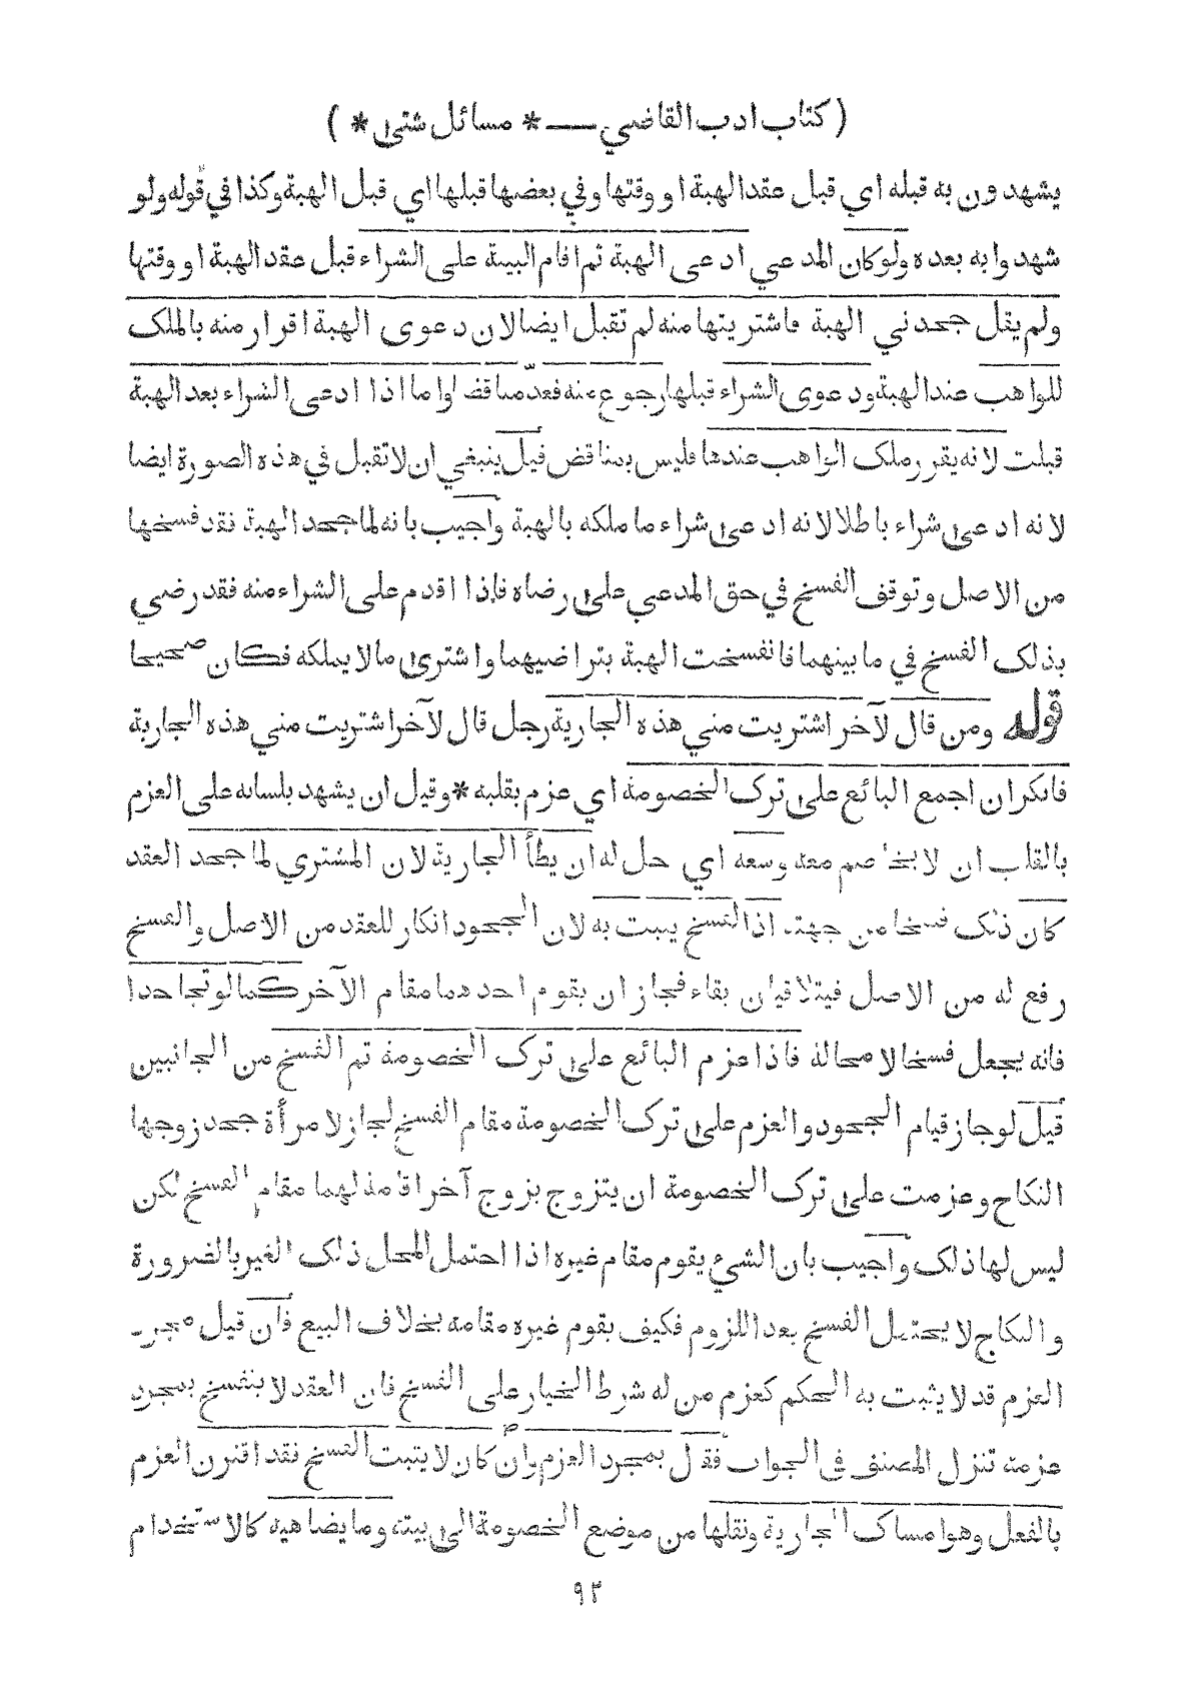 ( كتاب ادب القاضي — * مسائل شتى * )
يشهدون به قبله اي قبل عقد الهبة او وقتها وفي بعضها قبلها اي قبل الهبة وكذا في قوله ولو
شهدوا به بعده ولو كان المدعي ادعى الهبة ثم اقام البينة على الشراء قبل عقد الهبة او وقتها
ولم يقل جحدني الهبة فاشتريتها منه لم تقبل ايضا لان دعوى الهبة اقرار منه بالملك
للواهب عند الهبة ودعوى الشراء قبلها رجوع منه فعد مناقضا واما اذا ادعى الشراء بعد الهبة
قبلت لانه يقرر ملك الواهب عندها فليس بمناقض قيل ينبغي ان لا تقبل في هذه الصورة ايضا
لانه ادعى شراء باطلا لانه ادعى شراء ما ملكه بالهبة واجيب بانه لما جحد الهبة فقد فسخها
من الاصل وتوقف الفسخ في حق المدعي على رضاه فاذا اقدم على الشراء منه فقد رضي
بذلك الفسخ في ما بينهما فانفسخت الهبة بتراضيهما واشترى مالا يملكه فكان صحيحا
قوله ومن قال لآخر اشتريت مني هذه الجارية رجل قال لآخر اشتريت مني هذه الجارية
فانكر ان اجمع البائع على ترك الخصومة اي عزم بقلبه * وقيل ان يشهد بلسانه على العزم
بالقلب ان لا يخاصم معه وسعه اي حل له ان يطأ الجارية لان المشتري لما جحد العقد
كان ذلك فسخا من جهته اذ الفسخ يثبت به لان الجحود انكار للعقد من الاصل والفسخ
رفع له من الاصل فيتلاقيان بقاء فجاز ان يقوم احدهما مقام الآخر كما لو تجاحدا
فانه يجعل فسخا لا محالة فاذا عزم البائع على ترك الخصومة تم الفسخ من الجانبين
قيل لو جاز قيام الجحود والعزم على ترك الخصومة مقام الفسخ لجاز لامرأة جحد زوجها
النكاح وعزمت على ترك الخصومة ان يتزوج بزوج آخر اقامة لهما مقام الفسخ لكن
ليس لها ذلك واجيب بان الشيء يقوم مقام غيره اذا احتمل المحل ذلك الغير بالضرورة
والنكاح لا يحتمل الفسخ بعد اللزوم فكيف يقوم غيره مقامه بخلاف البيع فان قيل مجرد
العزم قد لا يثبت به الحكم كعزم من له شرط الخيار على الفسخ فان العقد لا ينفسخ بمجرد
عزمه تنزل المصنف في الجواب فقال بمجرد العزم وان كان لا يثبت الفسخ فقد اقترن العزم
بالفعل وهو امساك الجارية ونقلها من موضع الخصومة الى بيته وما يضاهيه كالاستخدام
٩٣